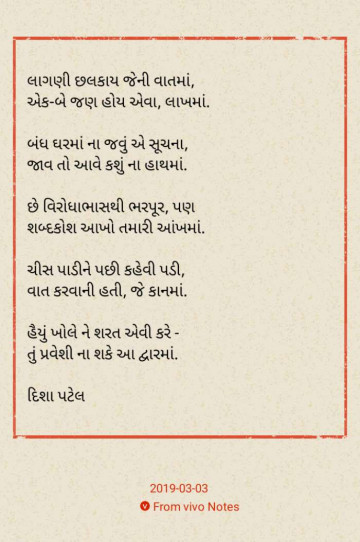 લાગણી છલકાય જેની વાતમાં,
એક-બે જણ હોય એવા, લાખમાં.
બંધ ઘરમાં ના જવું એ સૂચના,
જાવ તો આવે કશું ના હાથમાં.
છે વિરોધાભાસથી ભરપૂર, પણ
શબ્દકોશ આખો તમારી આંખમાં.
ચીસ પાડીને પછી કહેવી પડી,
વાત કરવાની હતી, જે કાનમાં.
હૈયું ખોલે ને શરત એવી કરે -
તું પ્રવેશી ના શકે આ દ્વારમાં.
દિશા પટેલ
2019-03-03
From vivo Notes